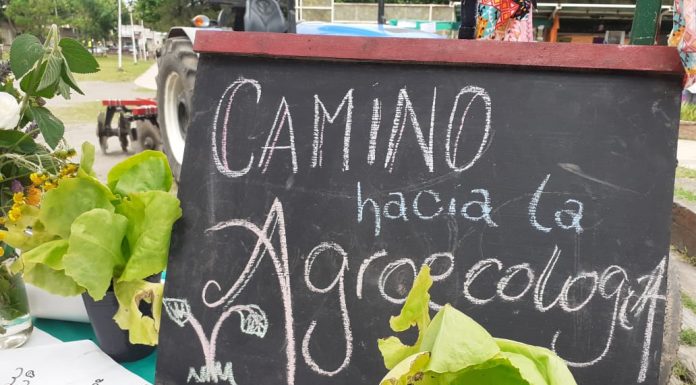 CAMINO
hacia la
AgroecologíA